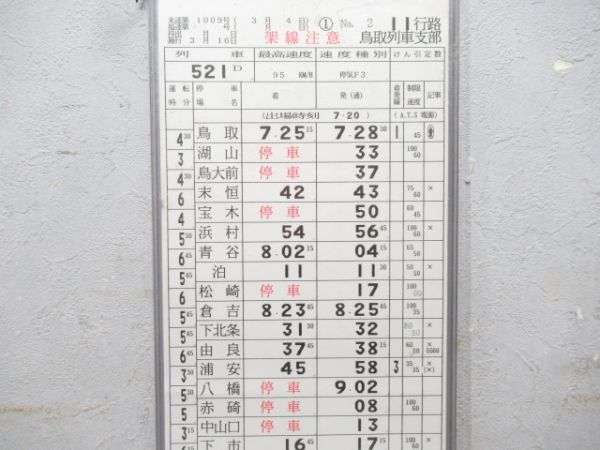 1009号 ( 3月 4日 ) ① No. 2 11行路
施行 3月16日 架線注意 鳥取列車支部
列車 最高速度 速度種別 けん引定数
521D 95 KM/H 停気F3
運転時分 停車場名 着 発(通) 着発線 制限速度 記事
(出場時刻 7-20) (A.T.S 電源)
鳥取 7.25 15 7.28 30 1 45
4 30
湖山 停車 33 100 60
3
鳥大前 停車 37
4 30
末恒 42 43 75 60 ×
6
宝木 停車 50 60 45
4
浜村 54 56 45 100 60 ×
5 30
青谷 8.02 15 04 15 65 50 ×
6 45
泊 11 11 30 50 50 ×
5 45
松崎 停車 17 100 60
6
倉吉 8.23 45 8.25 45 100 35
5 45
下北条 31 30 32 80 60 ×
5 45
由良 37 45 38 15 60 50 × 5560
6 45
浦安 45 58 3 35 35 × (×)
3 30
八橋 停車 9.02
5
赤碕 停車 08 100 60
5
中山口 停車 13
3 15
下市 16 45 17 15 100 60 ×